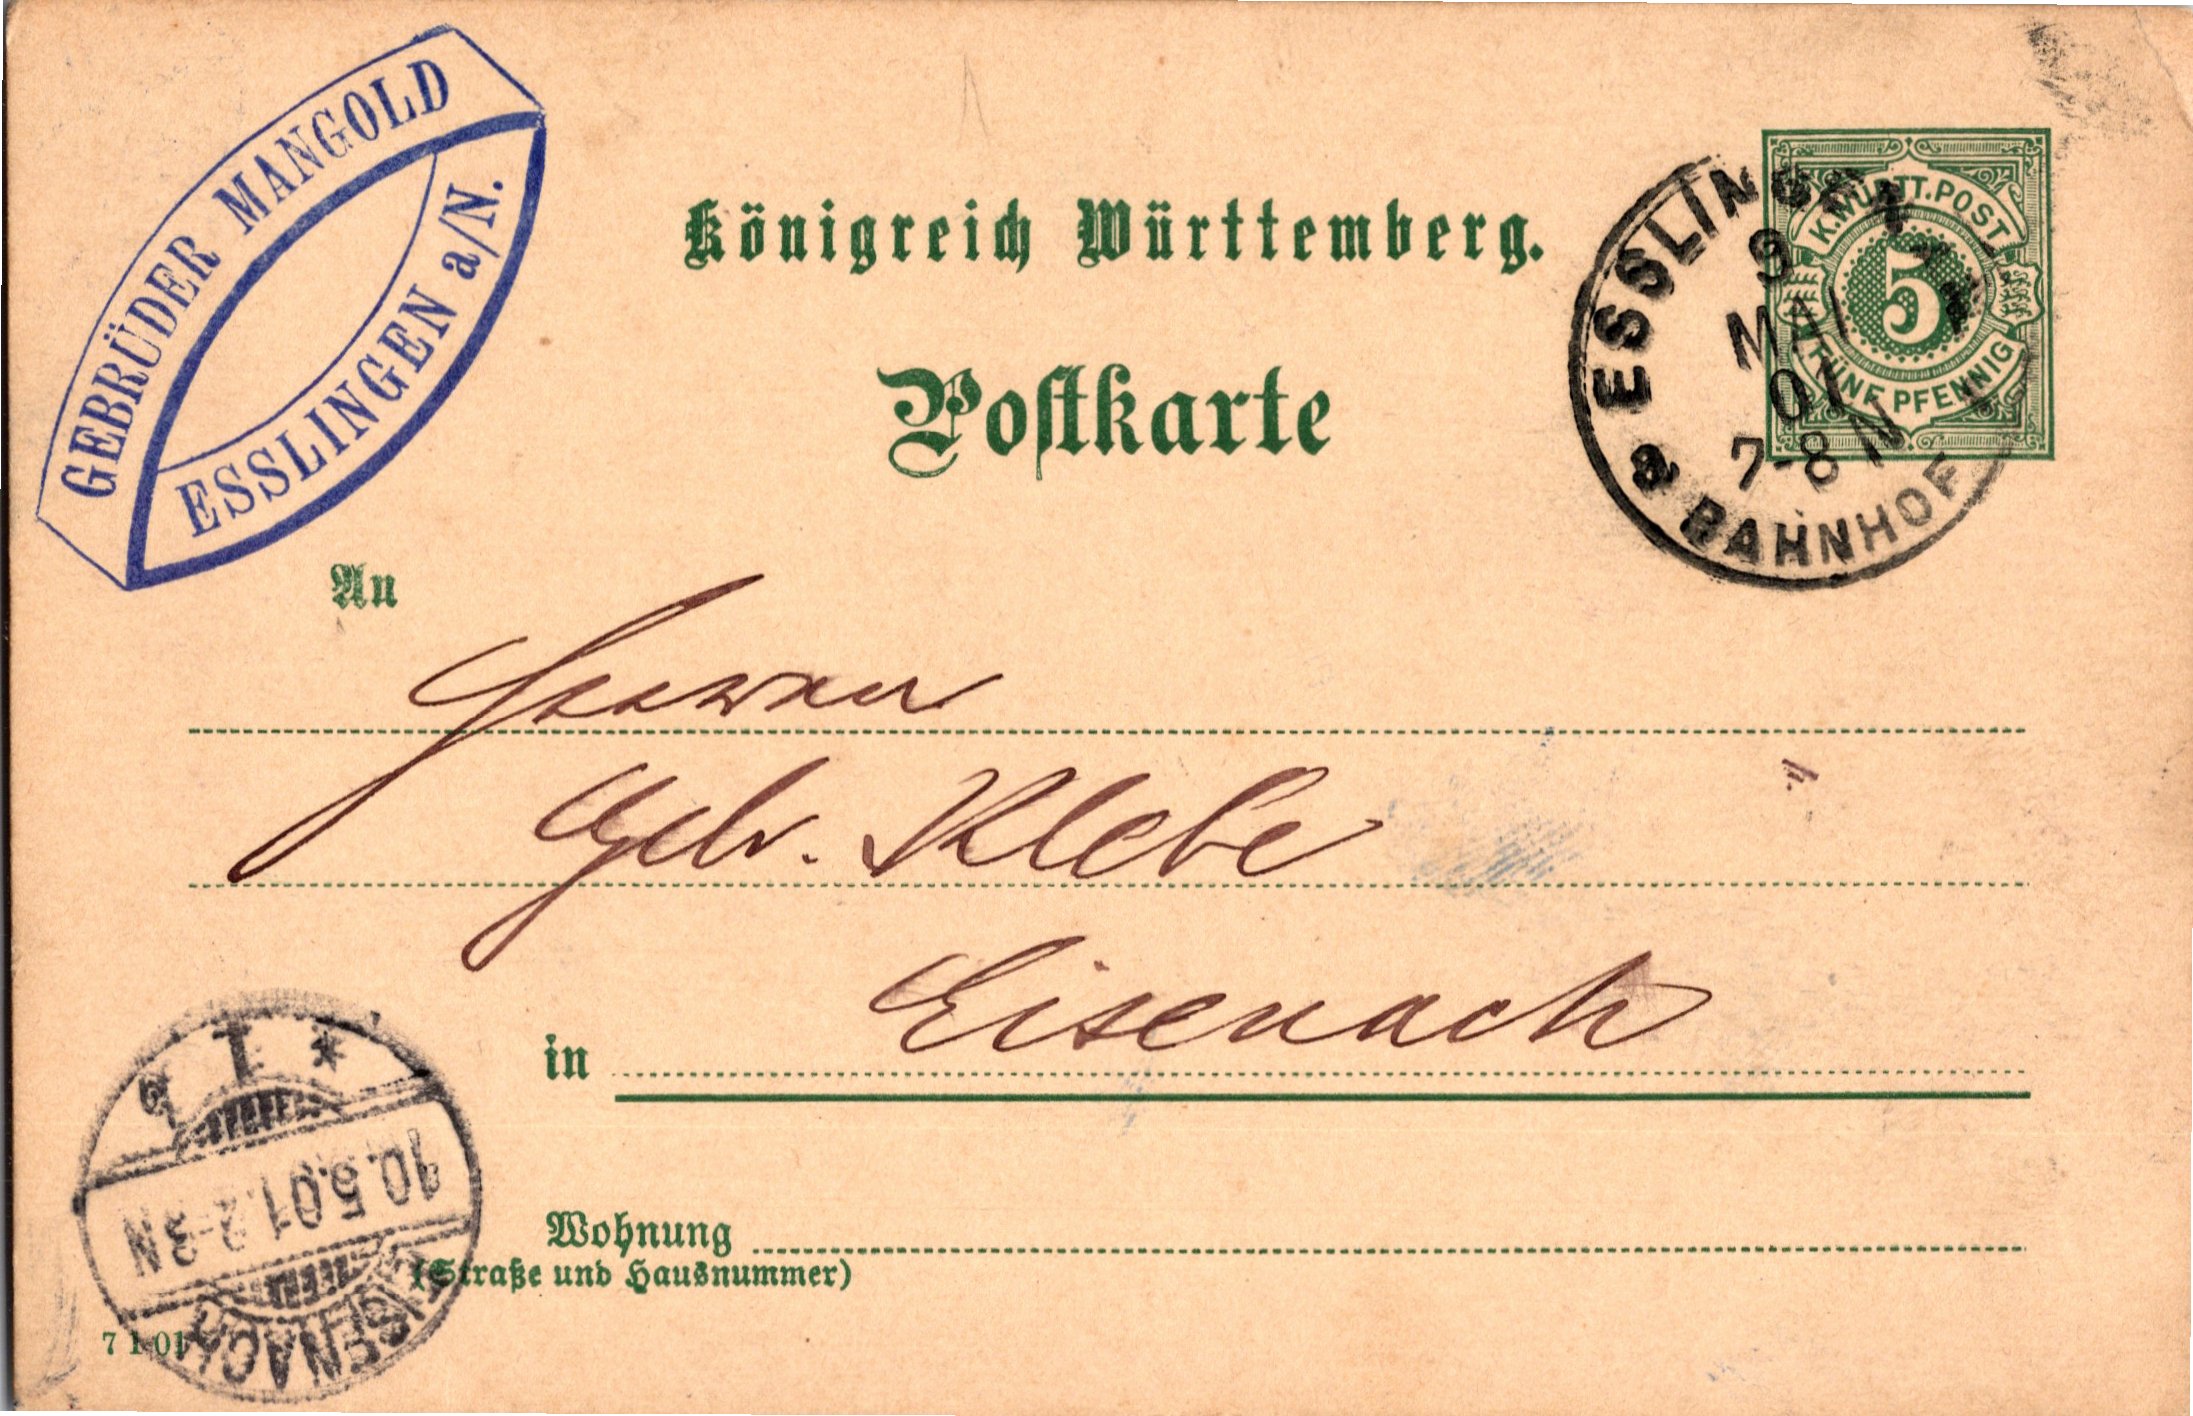 GEBRÜDER MANGOLD
ESSLINGEN a/N.
Königreich Württemberg.
Postkarte
K.WÜRTT.POST
5
FÜNF PFENNIG
ESSLINGEN
9
MAI
01
7-8 N
a BAHNHOF
An
Herren
Gebr. Klebe
in Eisenach
Wohnung
(Straße und Hausnummer)
EISENACH
10.5.01.2-3N
* 1
7 1 01